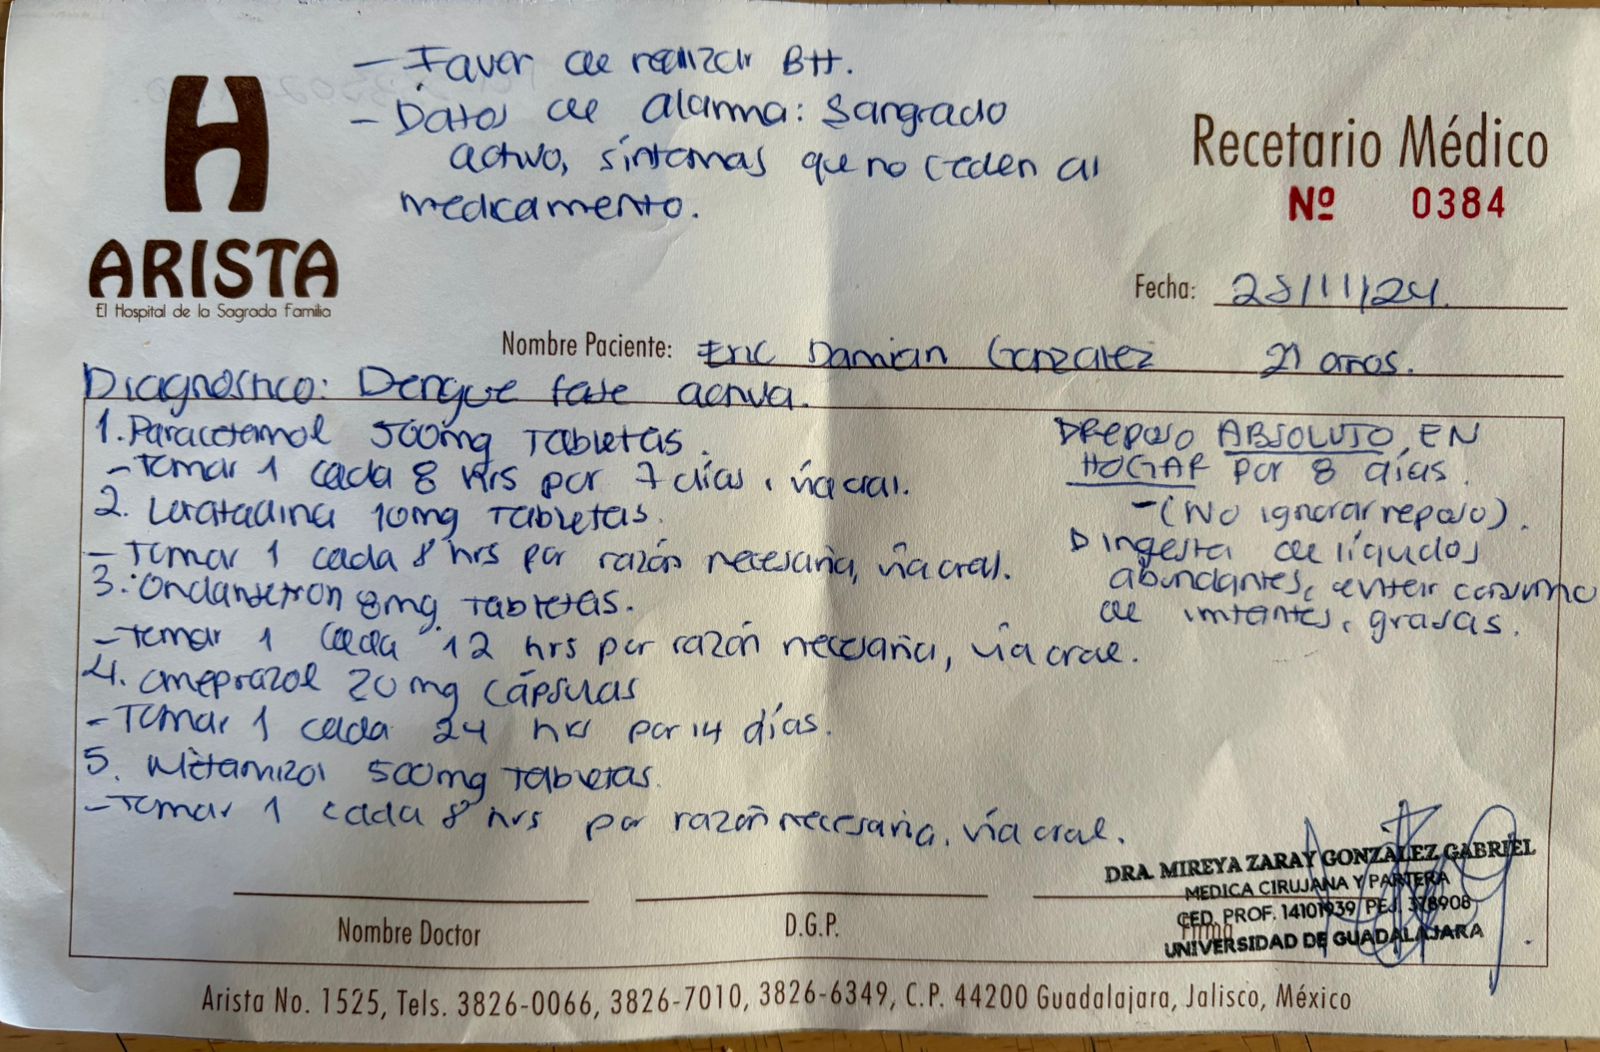 - Favor de realizar BH.
- Datos de alarma: Sangrado
activo, síntomas que no ceden al
medicamento.
H
ARISTA
El Hospital de la Sagrada Familia
Recetario Médico
Nº 0384
Fecha: 28/11/24.
Nombre Paciente: Eric Damian Gonzalez 21 años.
Diagnóstico: Dengue fase activa.
1. Paracetamol 500mg Tabletas.
- Tomar 1 cada 8 hrs por 7 días, vía oral.
2. Loratadina 10mg Tabletas.
- Tomar 1 cada 8 hrs por razón necesaria, vía oral.
3. Ondansetron 8mg Tabletas.
- Tomar 1 cada 12 hrs por razón necesaria, vía oral.
4. Omeprazol 20 mg cápsulas
- Tomar 1 cada 24 hrs por 14 días.
5. Metamizol 500mg Tabletas.
- Tomar 1 cada 8 hrs por razón necesaria, vía oral.
Reposo ABSOLUTO EN
HOGAR por 8 días.
- (No ignorar reposo).
Ingesta de líquidos
abundantes, evitar consumo
de irritantes, grasas.
DRA. MIREYA ZARAY GONZÁLEZ GABRIEL
MEDICA CIRUJANA Y PARTERA
CED. PROF. 14101939 PEJ. 378908
UNIVERSIDAD DE GUADALAJARA
Nombre Doctor
D.G.P.
Firma
Arista No. 1525, Tels. 3826-0066, 3826-7010, 3826-6349, C.P. 44200 Guadalajara, Jalisco, México